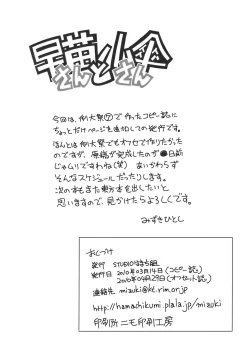 早苗さんと小傘さん
今回は、例大祭⑦で作ったコピー誌に
ちょっとだけページを追加しての発行です。
ほんとは例大祭でもオフセで作りたかった
のですが、原稿が完成したのが●日前
じゃムリですわね(笑) あいかわらず
そんなスケジュールだったりします。
次の本もまた東方本を出したいと
思いますので、見かけたらよろしくです。
みずきひとし
おくづけ
発行 STUDIOはま組
発行日 2010年03月14日(コピー誌)
2010年04月29日(オフセット誌)
連絡先 mizuki@kt.rim.or.jp
http://hamachikumi.plala.jp/mizuki
印刷所 ニモ印刷工房